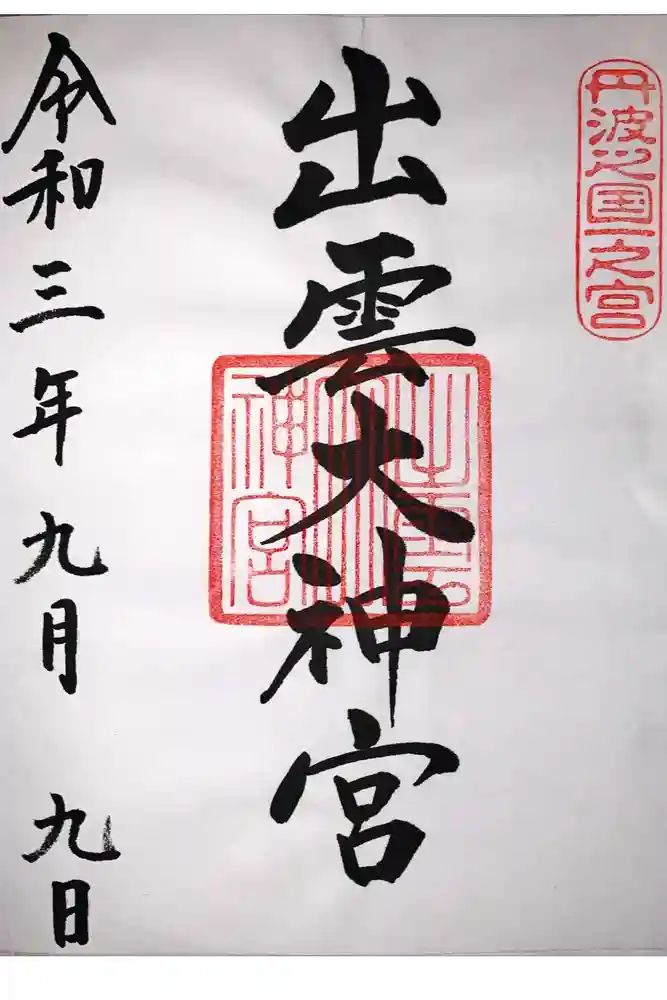 丹波之国一之宮
出雲大神宮
出雲大神宮
令和三年九月九日